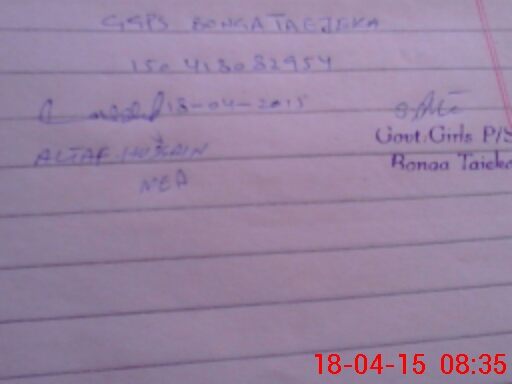 GGPS BONGA TAEJEKA
150 418082954
18-04-2015
ALTAF HUSAIN
MEA
Govt: Girls P/S
Bonga Taieka
18-04-15 08:35